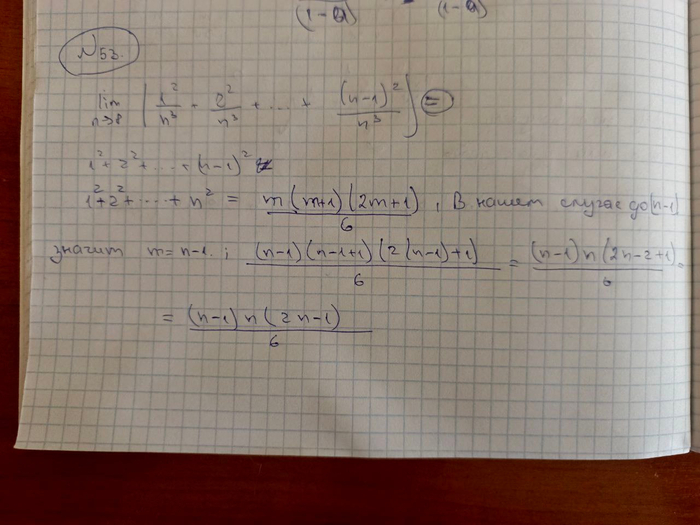 (1-Q) (1-Q)
N53.
lim n→8 [ 1²/n³ + 2²/n³ + ... + (n-1)²/n³ ] =
1²+2²+...+(n-1)²
1²+2²+...+n² = m(m+1)(2m+1)/6, В нашем случае до (n-1)
значит m=n-1.; (n-1)(n-1+1)(2(n-1)+1)/6 = (n-1)n(2n-2+1)/6 =
= (n-1)n(2n-1)/6